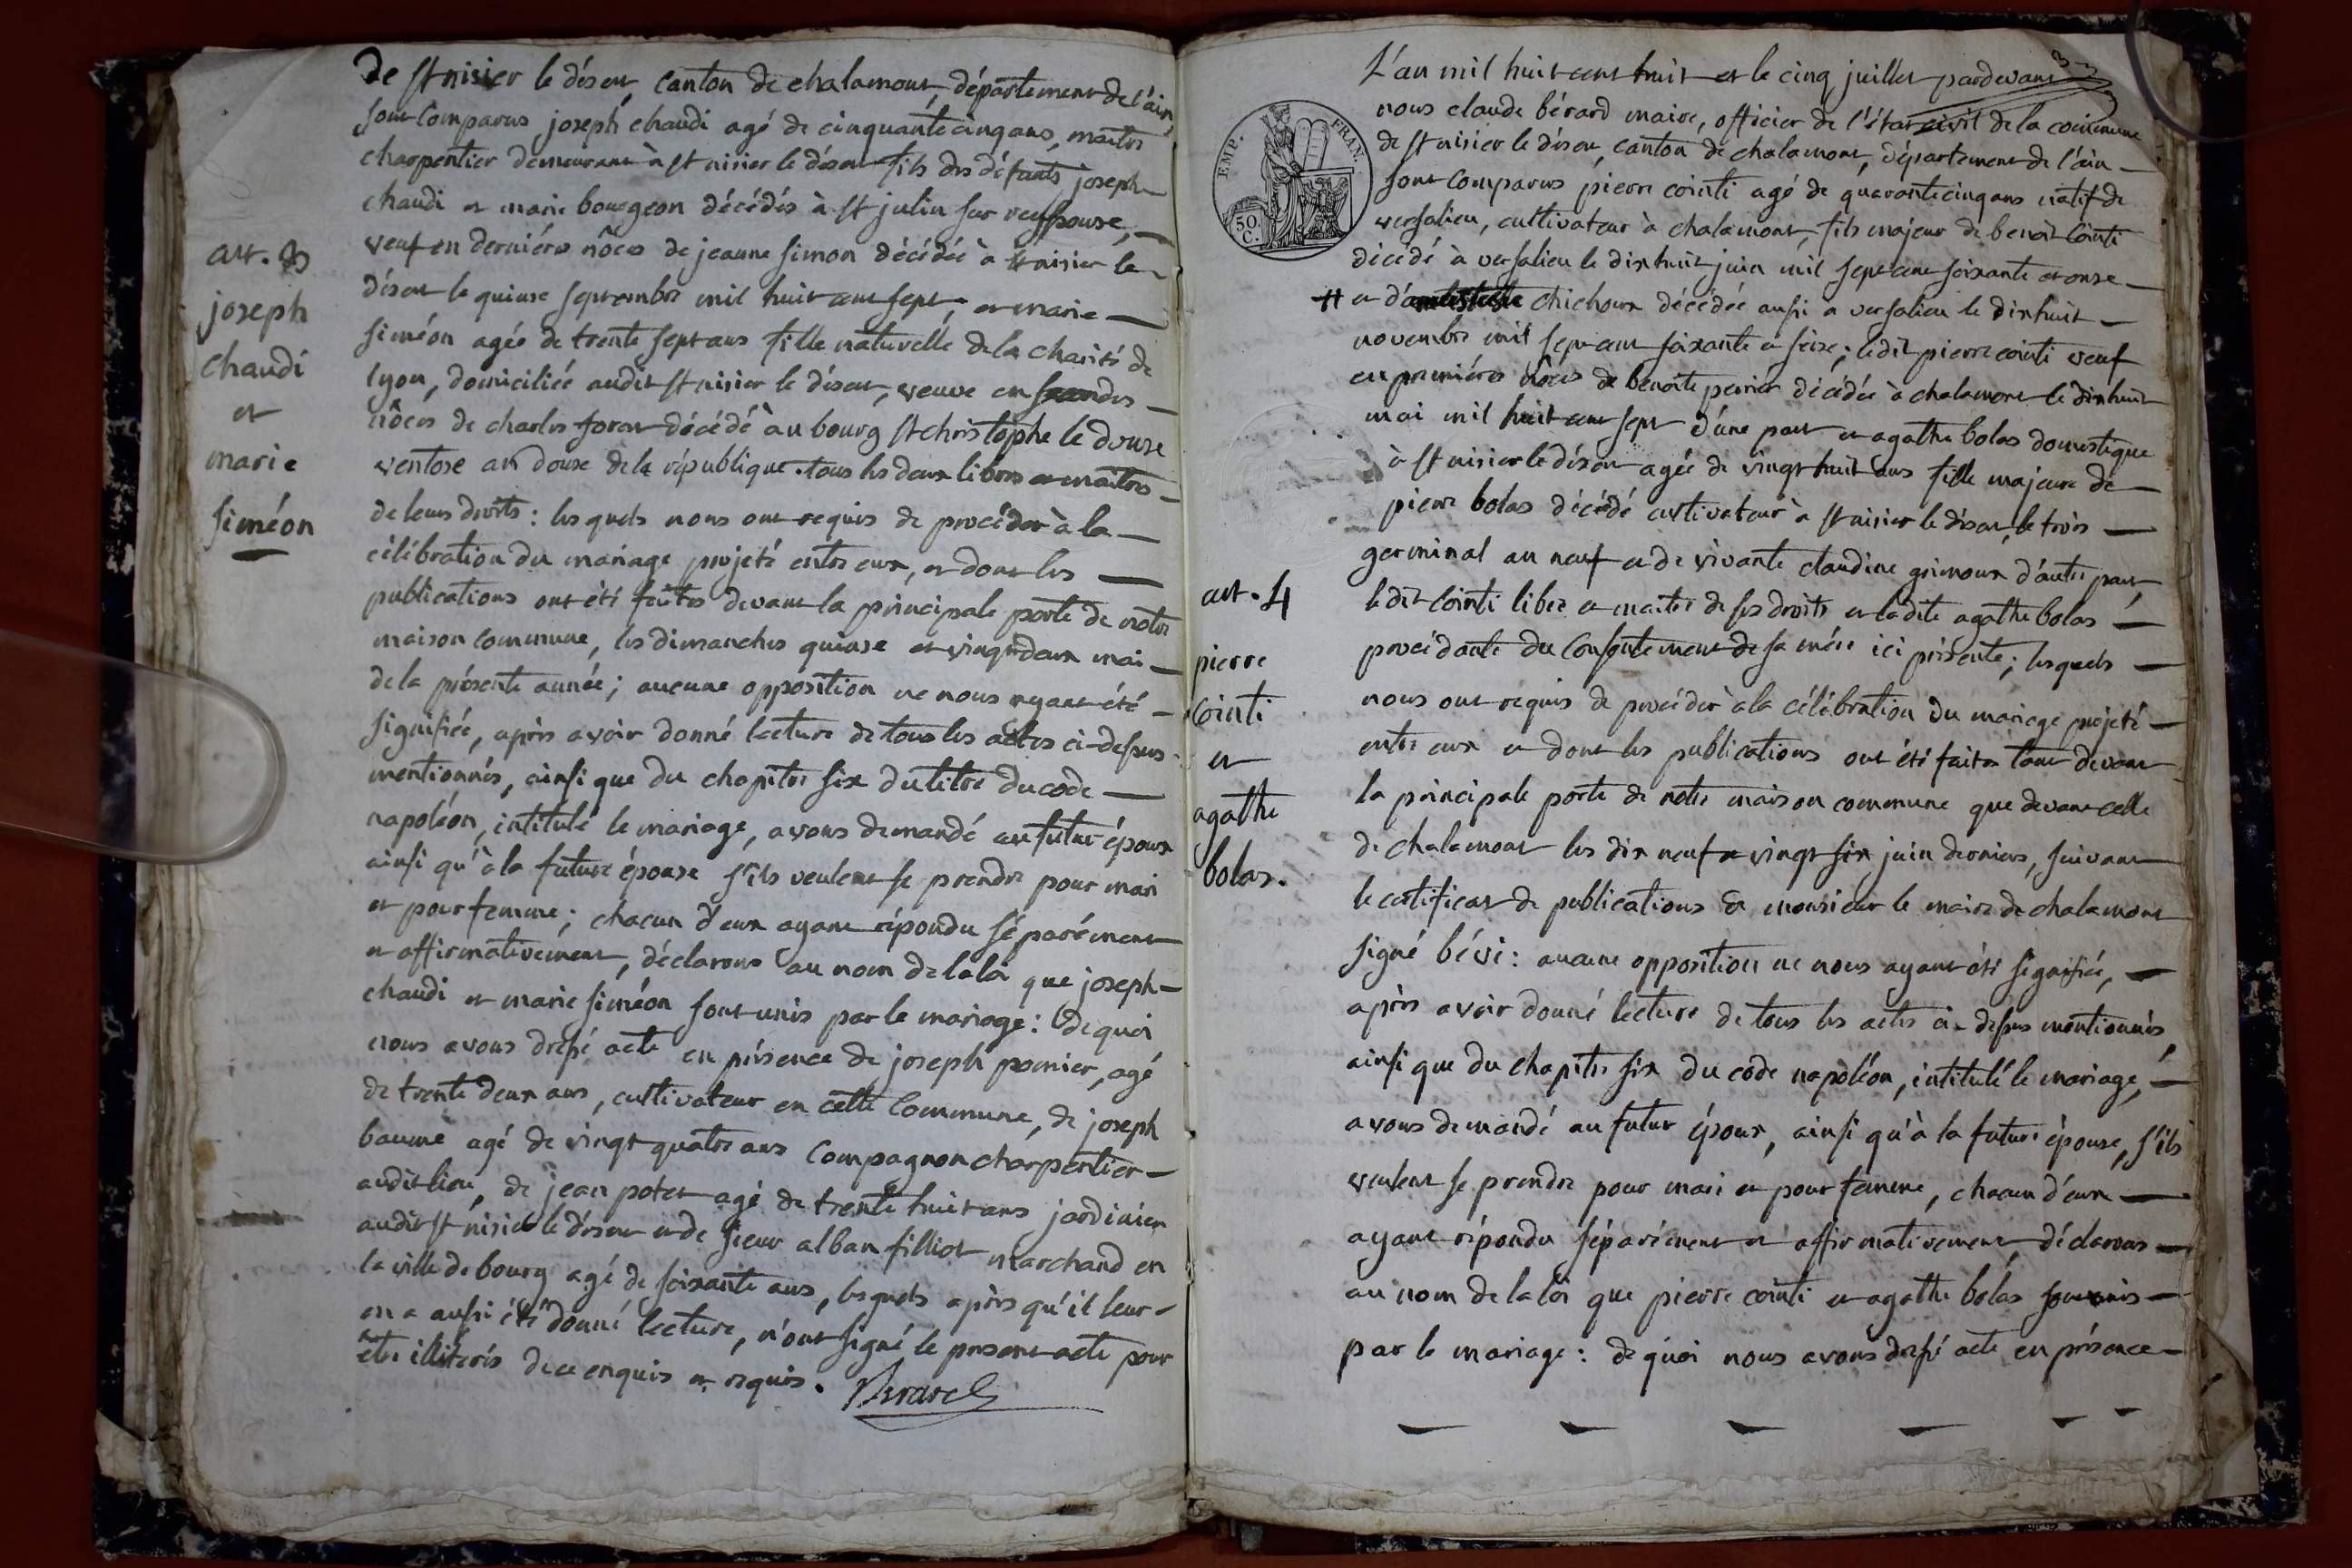 de St nisier le désert, canton de chalamont, département de l'ain
sont comparus joseph chaudi agé de cinquante cinq ans, maitre
charpentier demeurant à st nisier le désert fils des défunts joseph
chaudi et marie bourgeon décédés à st julin sur reyssouze,
veuf en derniéres nôces de jeanne simon décédée à st nisier le
désert le quinze septembre mil huit cent sept; et marie
siméon agée de trente sept ans fille naturelle de la charité de
lyon, domiciliée audit st nisier le désert, veuve en secondes
nôces de charles forat décédé au bourg st christophe le douze
ventose an douze de la république. tous les deux libres et maitres
de leurs droits: les quels nous ont requis de procéder à la
célébration du mariage projeté entre eux, et dont les
publications ont été faites devant la principale porte de notre
maison commune, les dimanches quinze et vingt deux mai
de la présente année; aucune opposition ne nous ayant été
signifiée, après avoir donné lecture de tous les actes ci-dessus
mentionnés, ainsi que du chapitre six du titre du code
napoléon, intitulé le mariage, avons demandé au futur époux
ainsi qu'à la future épouse s'ils veulent se prendre pour mari
et pour femme; chacun d'eux ayant répondu séparément
et affirmativement, déclarons au nom de la loi que joseph
chaudi et marie siméon sont unis par le mariage: de quoi
nous avons dressé acte en présence de joseph pornier, agé
de trente deux ans, cultivateur en cette commune, de joseph
baume agé de vingt quatre ans compagnon charpentier
audit lieu, de jean potet agé de trente huit ans jardinier
audit st nisier le désert et de sieur alban filliot marchand en
la ville de bourg agé de soixante ans, les quels après qu'il leur
en a aussi été donné lecture, n'ont signé le présent acte pour
être illitérés de ce enquis et requis. Berard
art. 3
joseph
chaudi
et
marie
siméon
3
L'an mil huit cent huit et le cinq juillet pardevant
nous claude bérard maire, officier de l'état civil de la commune
de st nisier le désert, canton de chalamont, département de l'ain
sont comparus pierre cointi agé de quarante cinq ans natif de
versalieu, cultivateur à chalamont, fils majeur de benoit cointi
décédé à versalieu le dix huit juin mil sept cent soixante et onze
et d' chichoux décédée aussi a versalieu le dix huit
novembre mil sept cent soixante et seize; ledit pierre cointi veuf
en premiéres nôces de benoite perrier décédée à chalamont le dix huit
mai mil huit cent sept d'une part et agathe bolas domestique
à st nisier le désert agée de vingt huit ans fille majeure de
pierre bolas décédé cultivateur à st nisier le désert, le trois
germinal an neuf et de vivante claudine grimoux d'autre part,
ledit cointi libre et maitre de ses droits et ladite agathe bolas
procédante du consentement de sa mére ici présente; lesquels
nous ont requis de procéder à la célébration du mariage projeté
entre eux et dont les publications ont été faites tant devant
la principale porte de notre maison commune que devant celle
de chalamont les dix neuf et vingt six juin derniers, suivant
le certificat de publications de monsieur le maire de chalamont
signé bévi: aucune opposition ne nous ayant été signifiée,
après avoir donné lecture de tous les actes ci-dessus mentionnés,
ainsi que du chapitre six du code napoléon, intitulé le mariage,
avons demandé au futur époux, ainsi qu'à la future épouse, s'ils
veulent se prendre pour mari et pour femme, chacun d'eux
ayant répondu séparément et affirmativement, déclarons
au nom de la loi que pierre cointi et agathe bolas sont unis
par le mariage: de quoi nous avons dressé acte en présence
art. 4
pierre
cointi
et
agathe
bolas.
EMP. FRAN.
50 C.